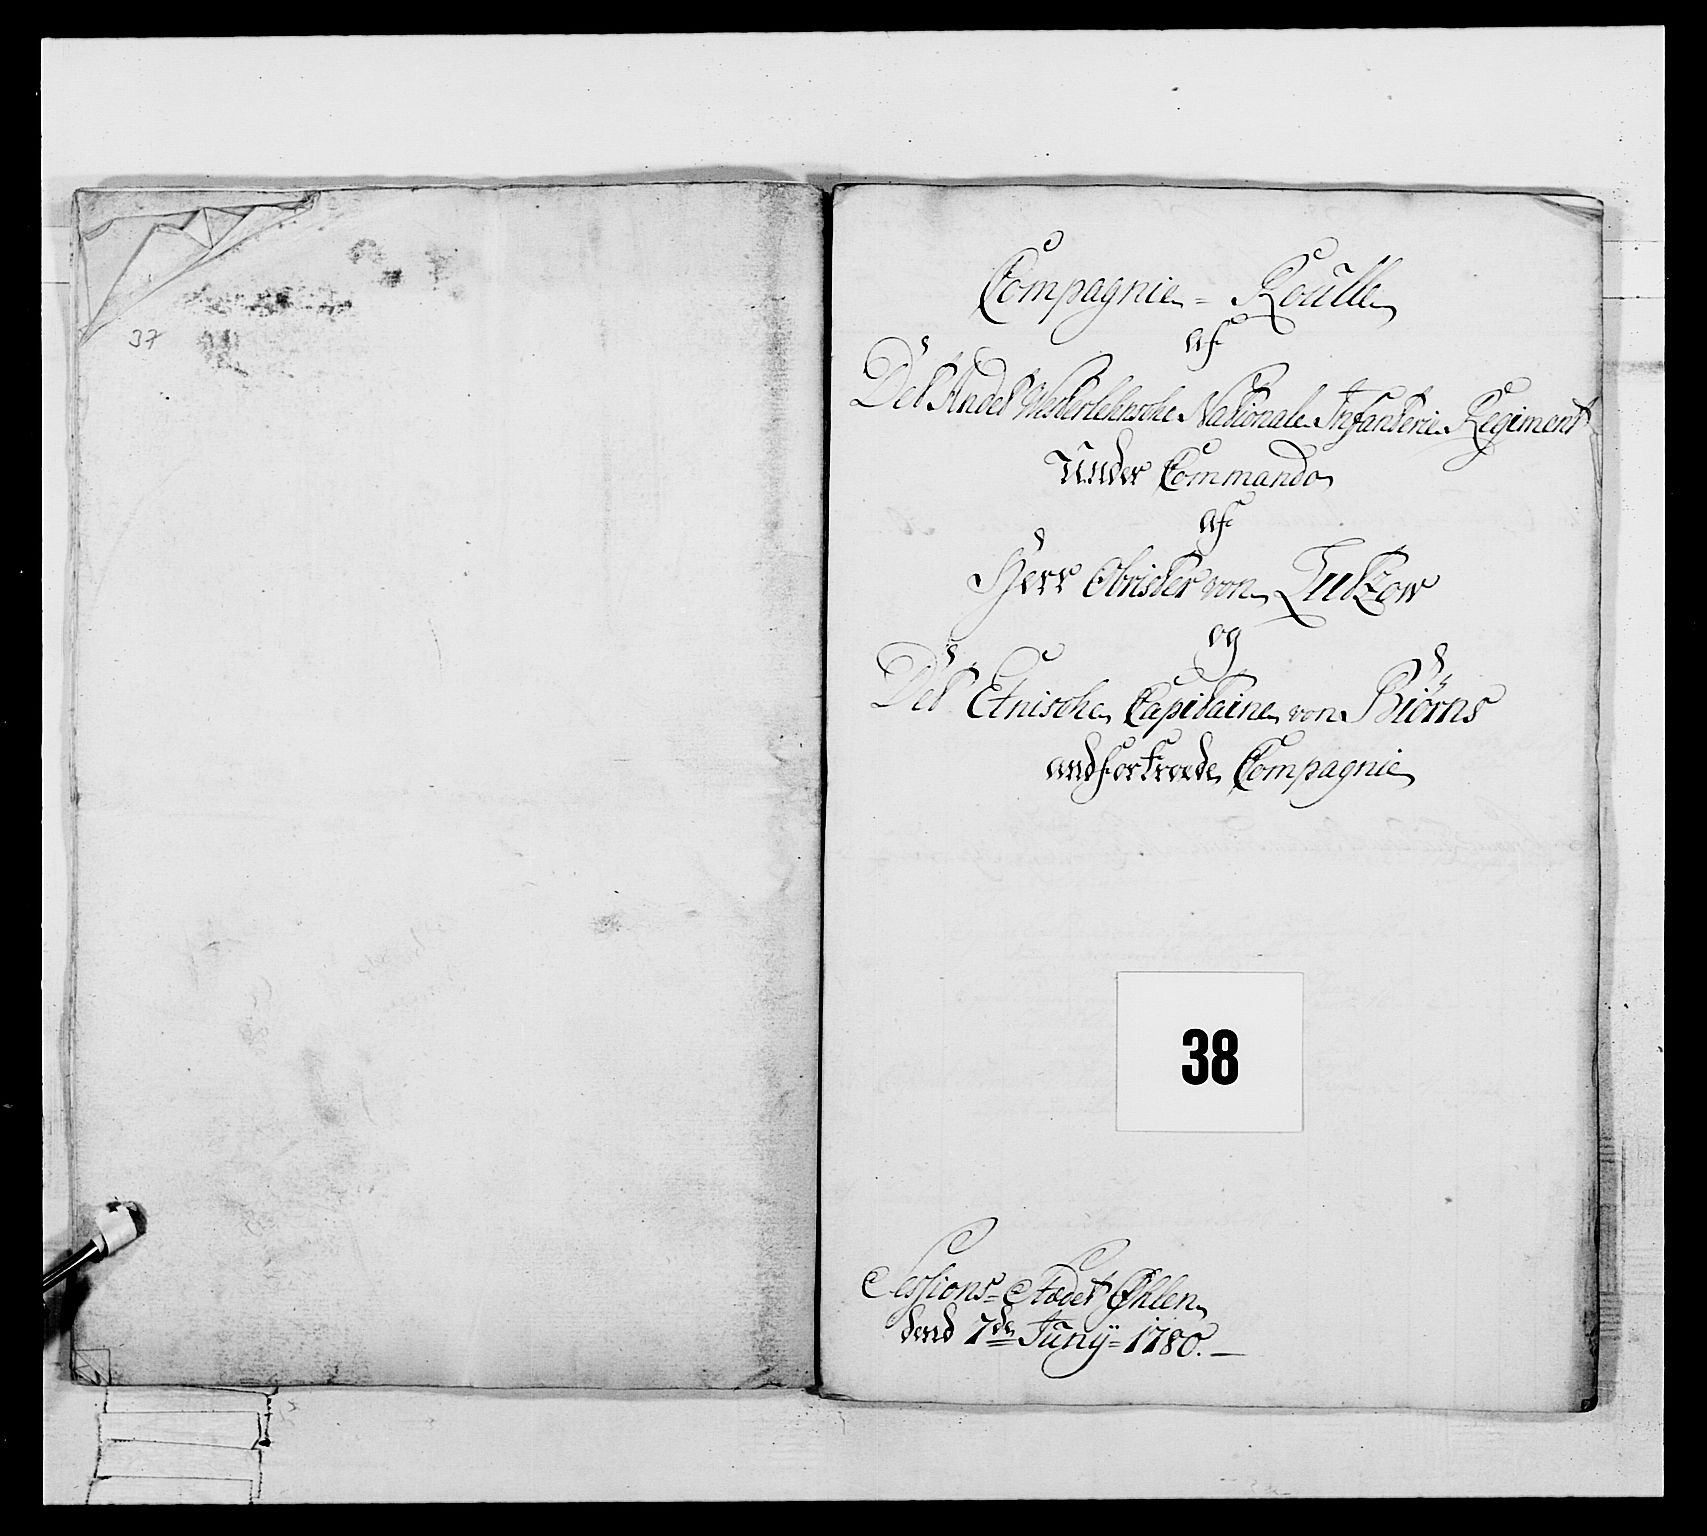 37
Compagnie = Roulle
af
Det Andet Vesterlehnsche Nationale Infanterie Regiment
Under Commando
af
Herr Obrister von Lutzow
og
Det Etnische Capitaine von Biørns
andfortroede Compagnie
38
Sessions = Stædet Øhlen
dend 7de Juny = 1780.